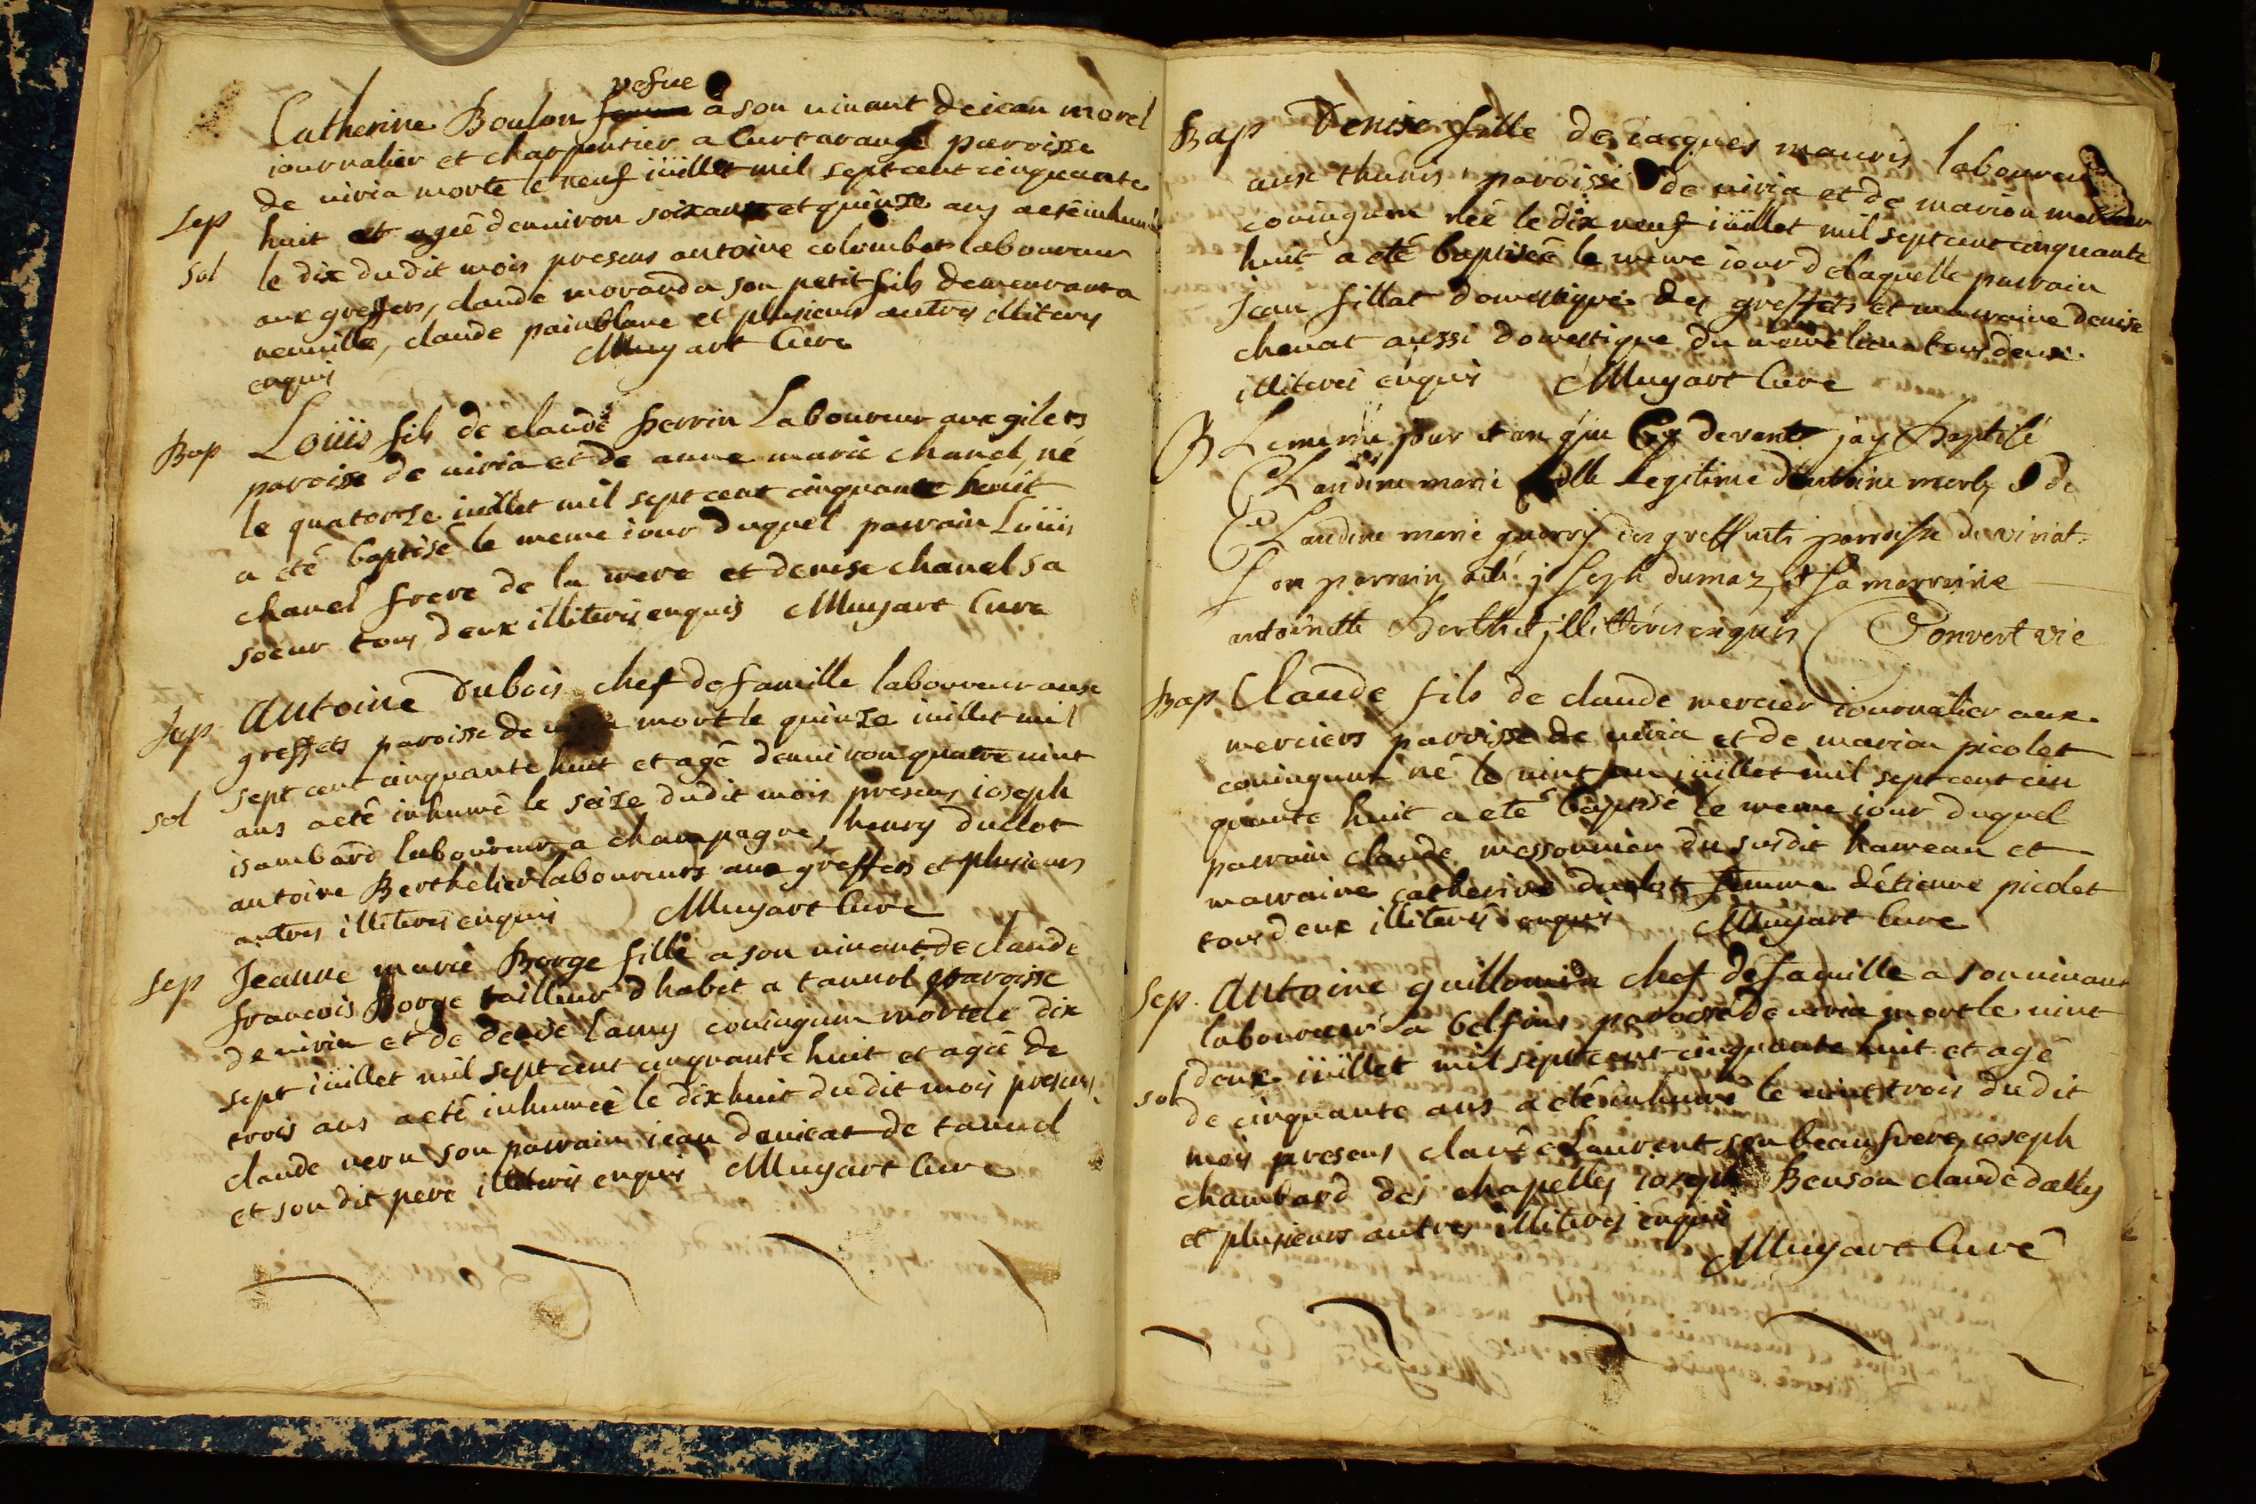 vefue
Catherine Boulon femme à son uiuant de iean morel
iournalier et charpentier a Curtarangé paroisse
de uiria morte le neuf iüillet mil sept cent cinquante
Sep huit et agée denuiron soixante et quinze ans a eté inhumée
Sol le dix dudit mois presens antoine colombet laboureur
aux greffets, claude morand a son petit fils demeurant a
neuuille, claude painblanc et plusieurs autres illiteres
enquis Muyart Cure
Bap Loüis fils de claude perrin Laboureur aux gilets
paroisse de uiria et de anne marie chanel, né
le quatorze iuillet mil sept cent cinquante huit
a eté baptisé le meme iour duquel parrain Loüis
chanel frere de la mere et denise chanel sa
soeur tous deux illiteres enquis Muyart Cure
Sep Antoine Dubois chef de famille laboureur aux
greffets paroisse de mort le quinze iuillet mil
sept cent cinquante huit et agé denuiron quatre uint
Sol ans a eté inhumé le seize dudit mois presens ioseph
isambard laboureur a champagne, henry duclot
antoine Berthelier laboureurs aux greffets et plusieurs
autres illiteres enquis Muyart Cure
Sep Jeanne marie Borge fille a son uiuant de claude
francois Borge tailleur d habit a tannol paroisse
de uiria et de denise lamy coniugum morte le dix
sept iüillet mil sept cent cinquante huit et agée de
trois ans a eté inhumée le dix huit du dit mois presens
claude neru son parrain iean denieat de tannol
et son dit pere illiteres enquis Muyart Cure
Bap Denise fille de iacques mauris laboureur
aux thenis paroisse de uiria et de marion mercier
coniugum née le dix neuf iüillet mil sept cent cinquante
huit a eté baptisée le meme iour de laquelle parrain
Jean fillat domestique des greffets et marraine denise
chenat aussi domestique du meme lieu tous deux
illiteres enquis Muyart Cure
B Le meme jour et an que Cy devant jay Baptisé
Claudine marie fille Legitime dantoine morly & de
Claudine marie guerry des greffetts parroisse de viriat
Son parrain a été joseph dumaz & sa marraine
antoinette Berthet jllitteres enquis Convert vic
Bap Claude fils de claude mercier iournalier aux
merciers paroisse de uiria et de marion picolet
coniugum né le uint un iüillet mil sept cent cin
quante huit a eté baptisé le meme iour duquel
parrain claude messonnier du susdit hameau et
marraine catherine duclot femme d'étienne picolet
tous deux illiteres enquis Muyart Cure
Sep Antoine guillemin chef de famille a son uiuant
laboureur a belfins paroisse de uiria mort le uint
deux iüillet mil sept cent cinquante huit et agé
Sol de cinquante ans a eté inhumé le uint trois dudit
mois presens claude Laurent son beau frere, ioseph
chambard des chapelles ioseph Benson claude dally
et plusieurs autres illiteres enquis
Muyart Curé